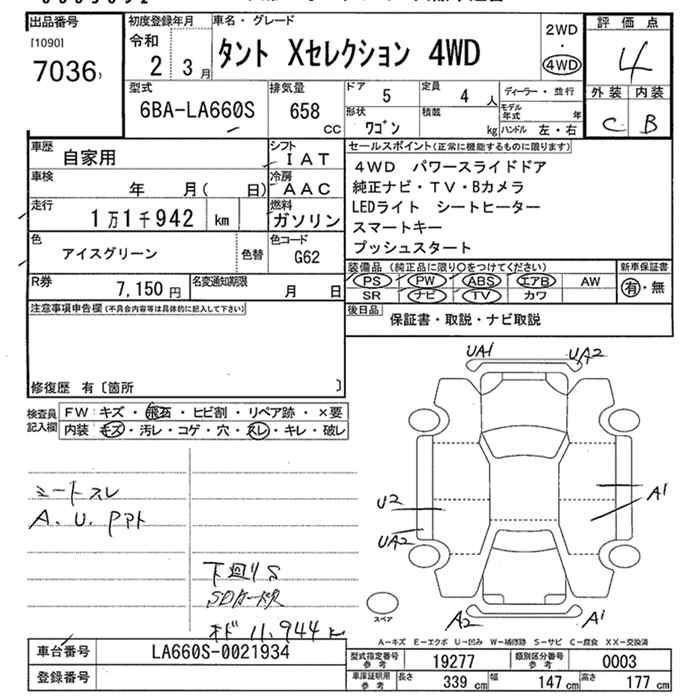 出品番号
[1090]
7036
初度登録年月
令和
2 3月
車名・グレード
タント Xセレクション 4WD
2WD
・
4WD
評価点
4
外装 内装
C B
型式
6BA-LA660S
排気量
658
cc
ドア
5
定員
4 人
形状
ワゴン
積載
kg
ディーラー・並行
モデル年式 年
ハンドル 左・右
車歴
自家用
シフト
IAT
車検
年 月( 日)
冷房
AAC
走行
1万1千942 km
燃料
ガソリン
色
アイスグリーン
色替
色コード
G62
R券
7,150 円
名変通知期限
月 日
セールスポイント(正常に機能するものに限ります)
4WD パワースライドドア
純正ナビ・TV・Bカメラ
LEDライト シートヒーター
スマートキー
プッシュスタート
装備品 (純正品に限り○をつけてください)
PS PW ABS エアB AW
SR ナビ TV カワ
新車保証書
有・無
後日品
保証書・取説・ナビ取説
注意事項申告欄(不具合内容等は具体的に記入して下さい)
修復歴 有〔箇所 〕
検査員
記入欄
FW: キズ・飛石・ヒビ割・リペア跡・×要
内装 キズ・汚レ・コゲ・穴・スレ・キレ・破レ
シートスレ
A.U.Pアト
下廻りS
SDカード欠
オド 11,944k
UA1
UA2
U2
UA2
A1
A2
A1
スペア
A-キズ E-エクボ U-凹み W-補修跡 S-サビ C-腐食 XX-交換済
車台番号
LA660S-0021934
登録番号
型式指定番号
参考
19277
類別区分番号
参考
0003
車庫証明用
参考
長さ 339 cm
幅 147 cm
高さ 177 cm